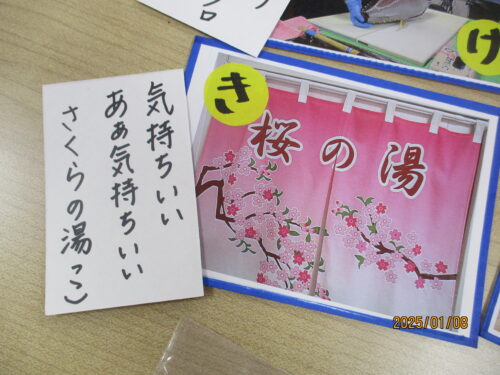 気持ちいい
ああ気持ちいい
さくらの湯っこ
き
桜の湯
け
プロ
2025/01/08